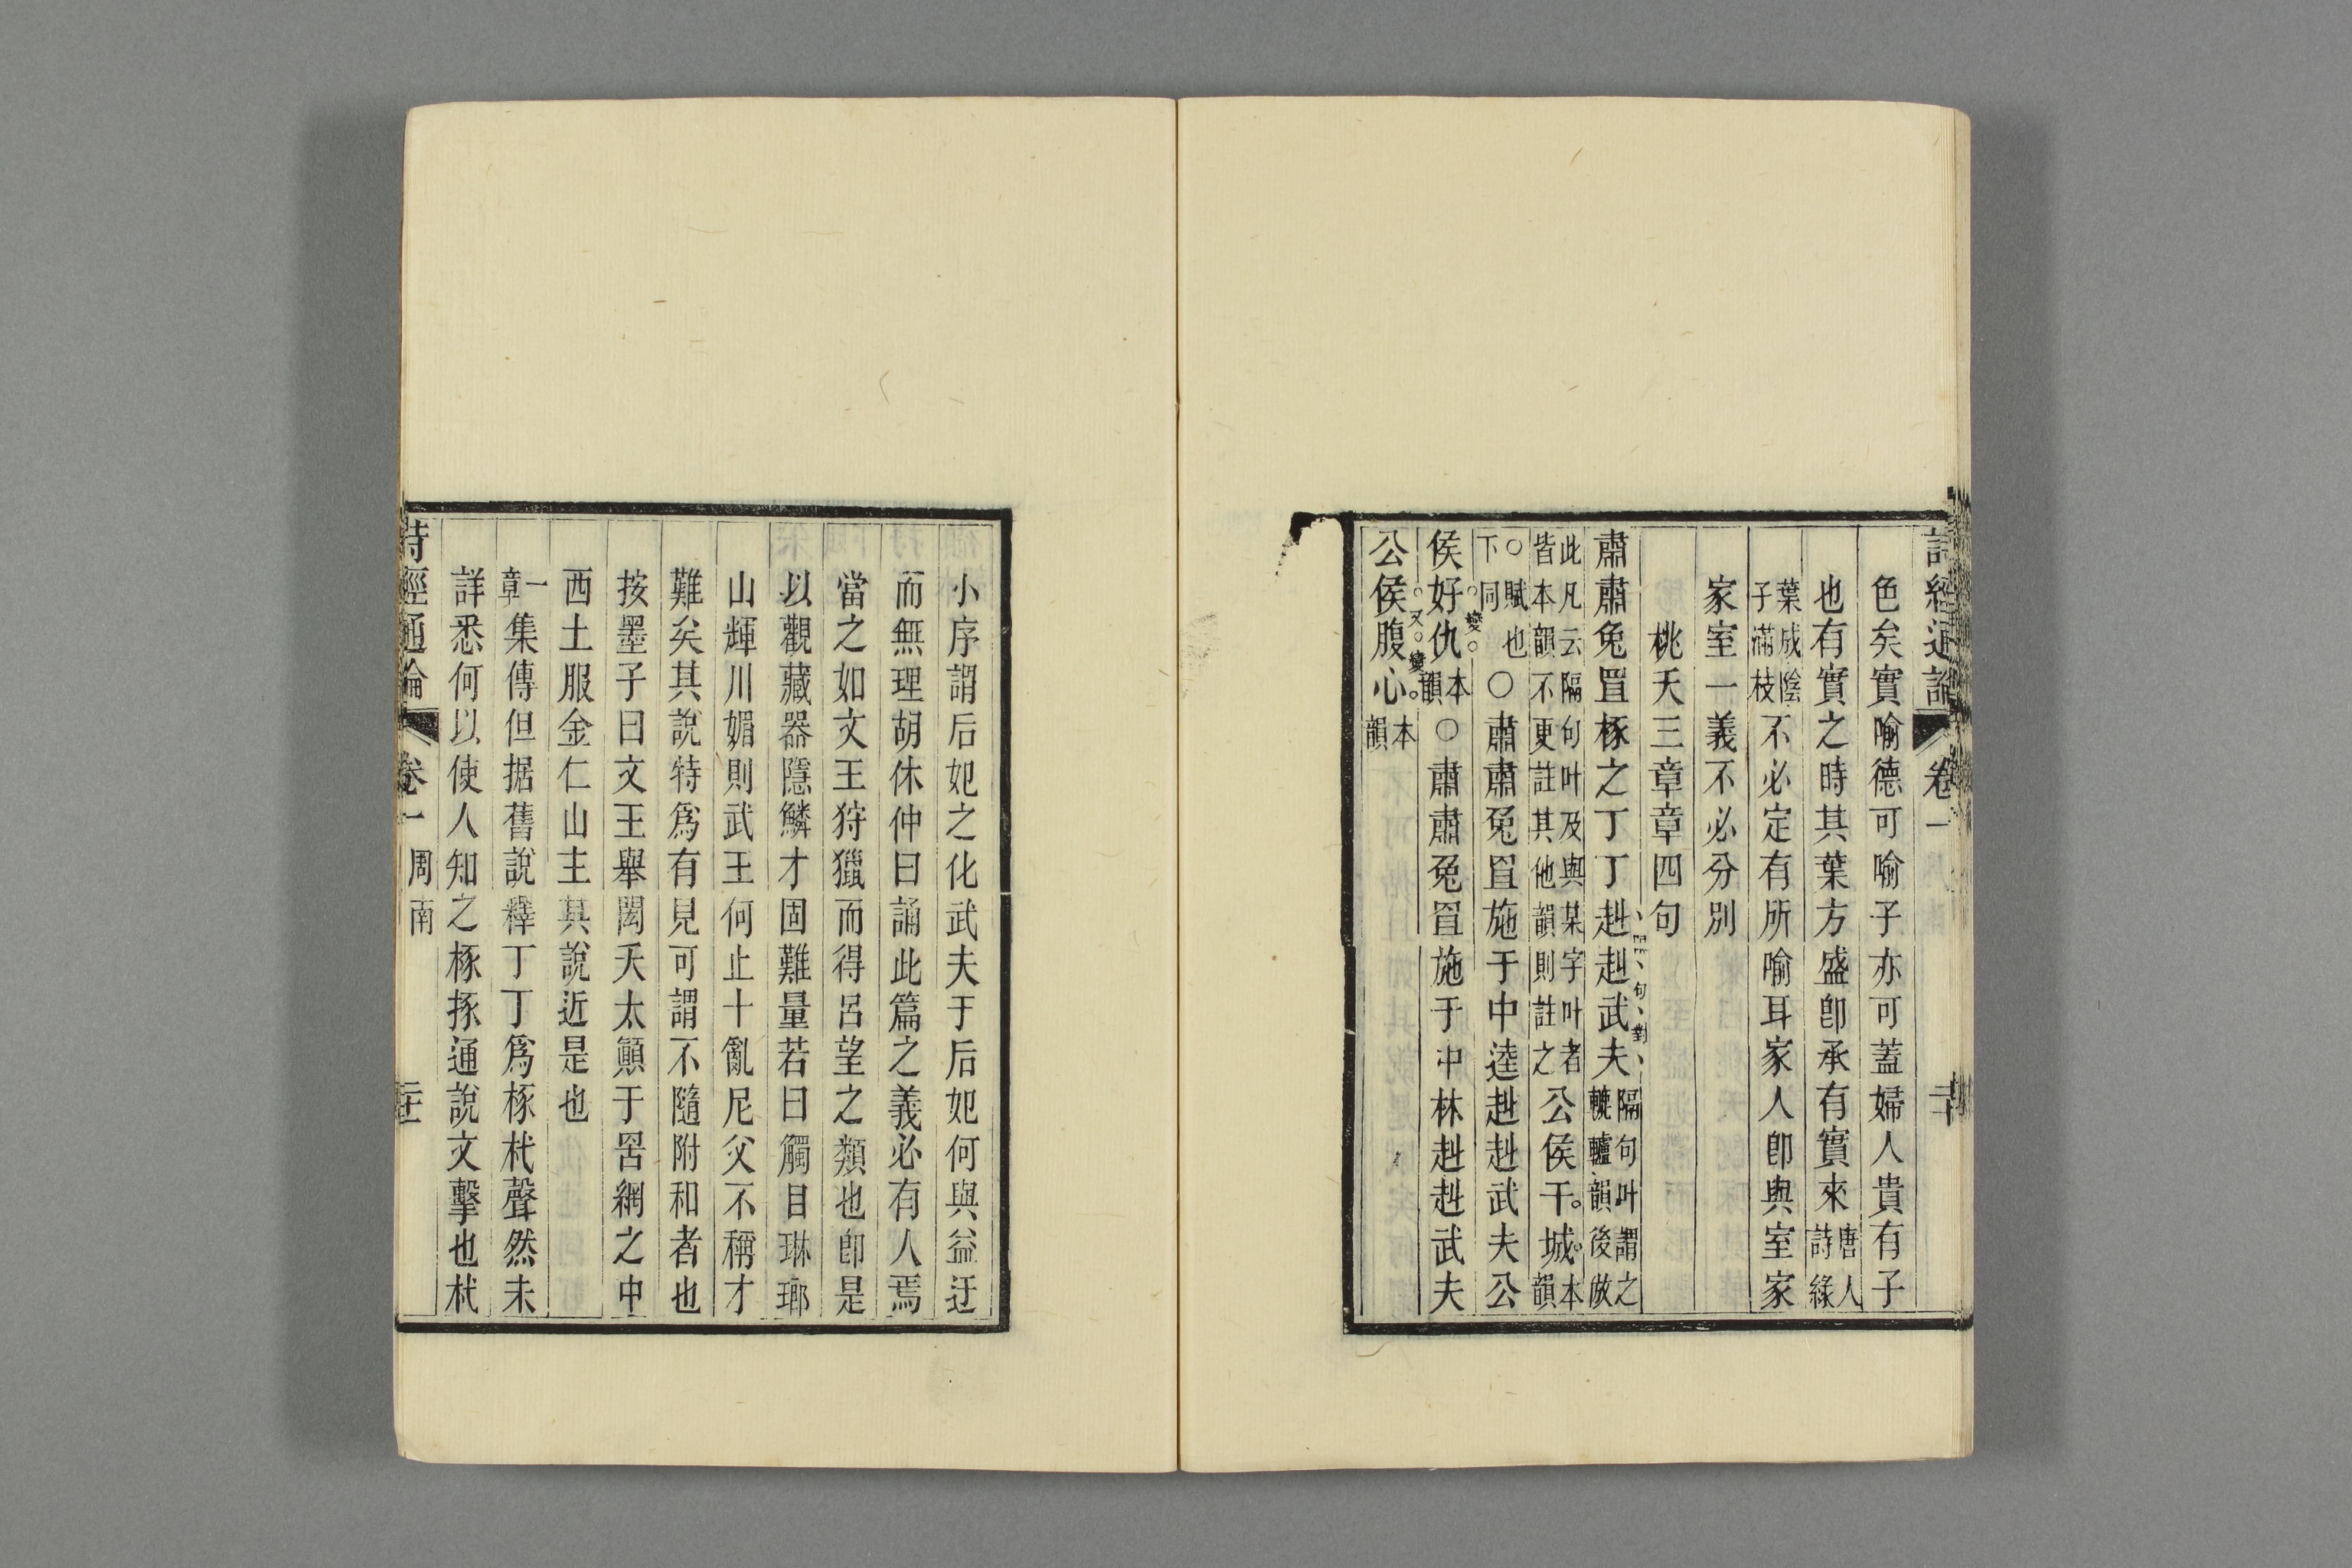 詩經通論 卷一 二十
色矣實喻德可喻子亦可蓋婦人貴有子
也有實之時其葉方盛卽承有實來唐人詩綠
葉成陰子滿枝不必定有所喻耳家人卽與室家
家室一義不必分別
桃夭三章章四句
肅肅兔罝椓之丁丁赳赳武夫隔句叶謂之轆轤韻後倣
隔、句、對、
此凡云隔句叶及與某字叶者皆本韻不更註其他韻則註之公侯干城本韻
○賦也下同○肅肅兔罝施于中逵赳赳武夫公
侯好仇本韻○肅肅兔罝施于中林赳赳武夫
○變○
公侯腹心本韻
○又○變○
小序謂后妃之化武夫于后妃何與益迂
而無理胡休仲曰誦此篇之義必有人焉
當之如文王狩獵而得呂望之類也卽是
以觀藏器隱鱗才固難量若曰觸目琳瑯
山輝川媚則武王何止十亂尼父不稱才
難矣其說特爲有見可謂不隨附和者也
按墨子曰文王舉閎夭太顛于罟網之中
西土服金仁山主其說近是也
一章集傳但据舊說釋丁丁爲椓杙聲然未
詳悉何以使人知之椓㧻通說文擊也杙
詩經通論 卷一 周南 二十一